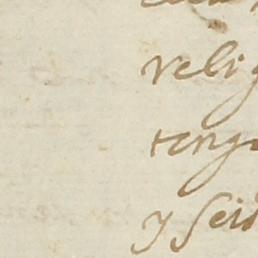 relig
teng
y seis